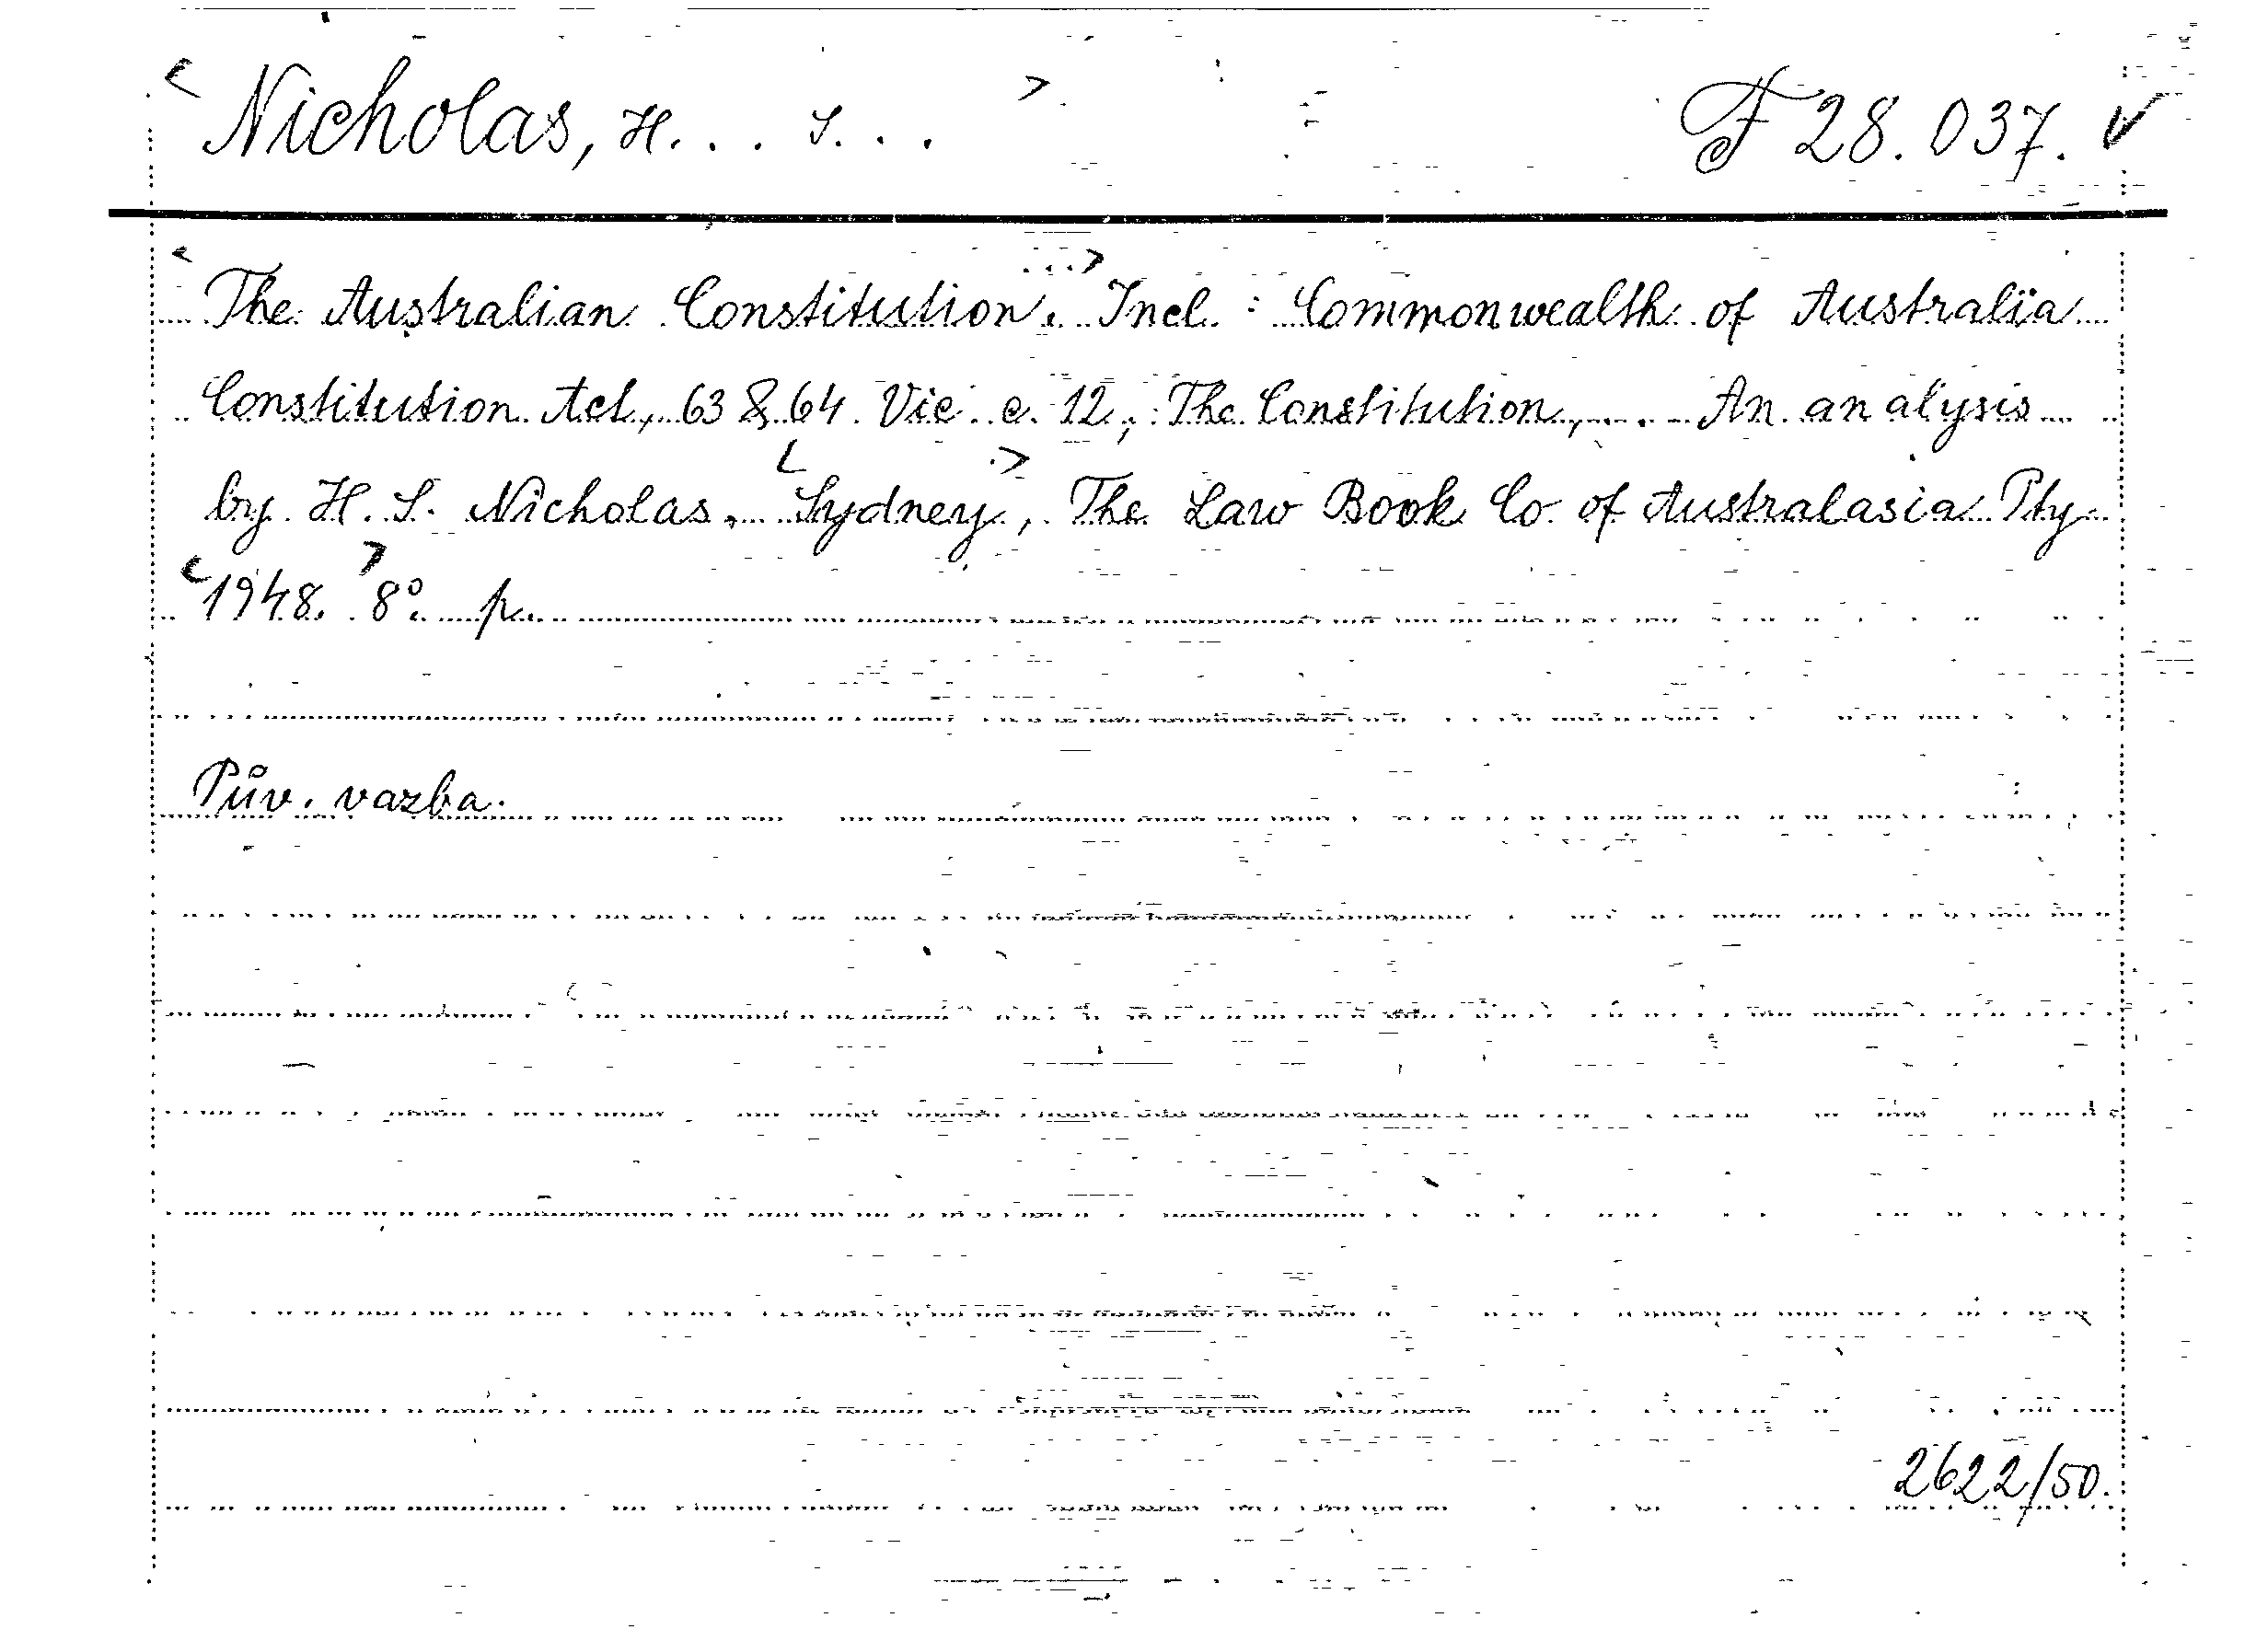 <Nicholas, H... S...> F 28.037. ✓
<The Australian Constitution. ...> Incl. : Commonwealth of Australia
Constitution Act, 63 & 64 Vic. c. 12; The Constitution, ... An analysis
by H. S. Nicholas. <Sydney.>, The Law Book Co. of Australasia Pty
<1948.> 8°. p.
Pův. vazba.
2622/50.